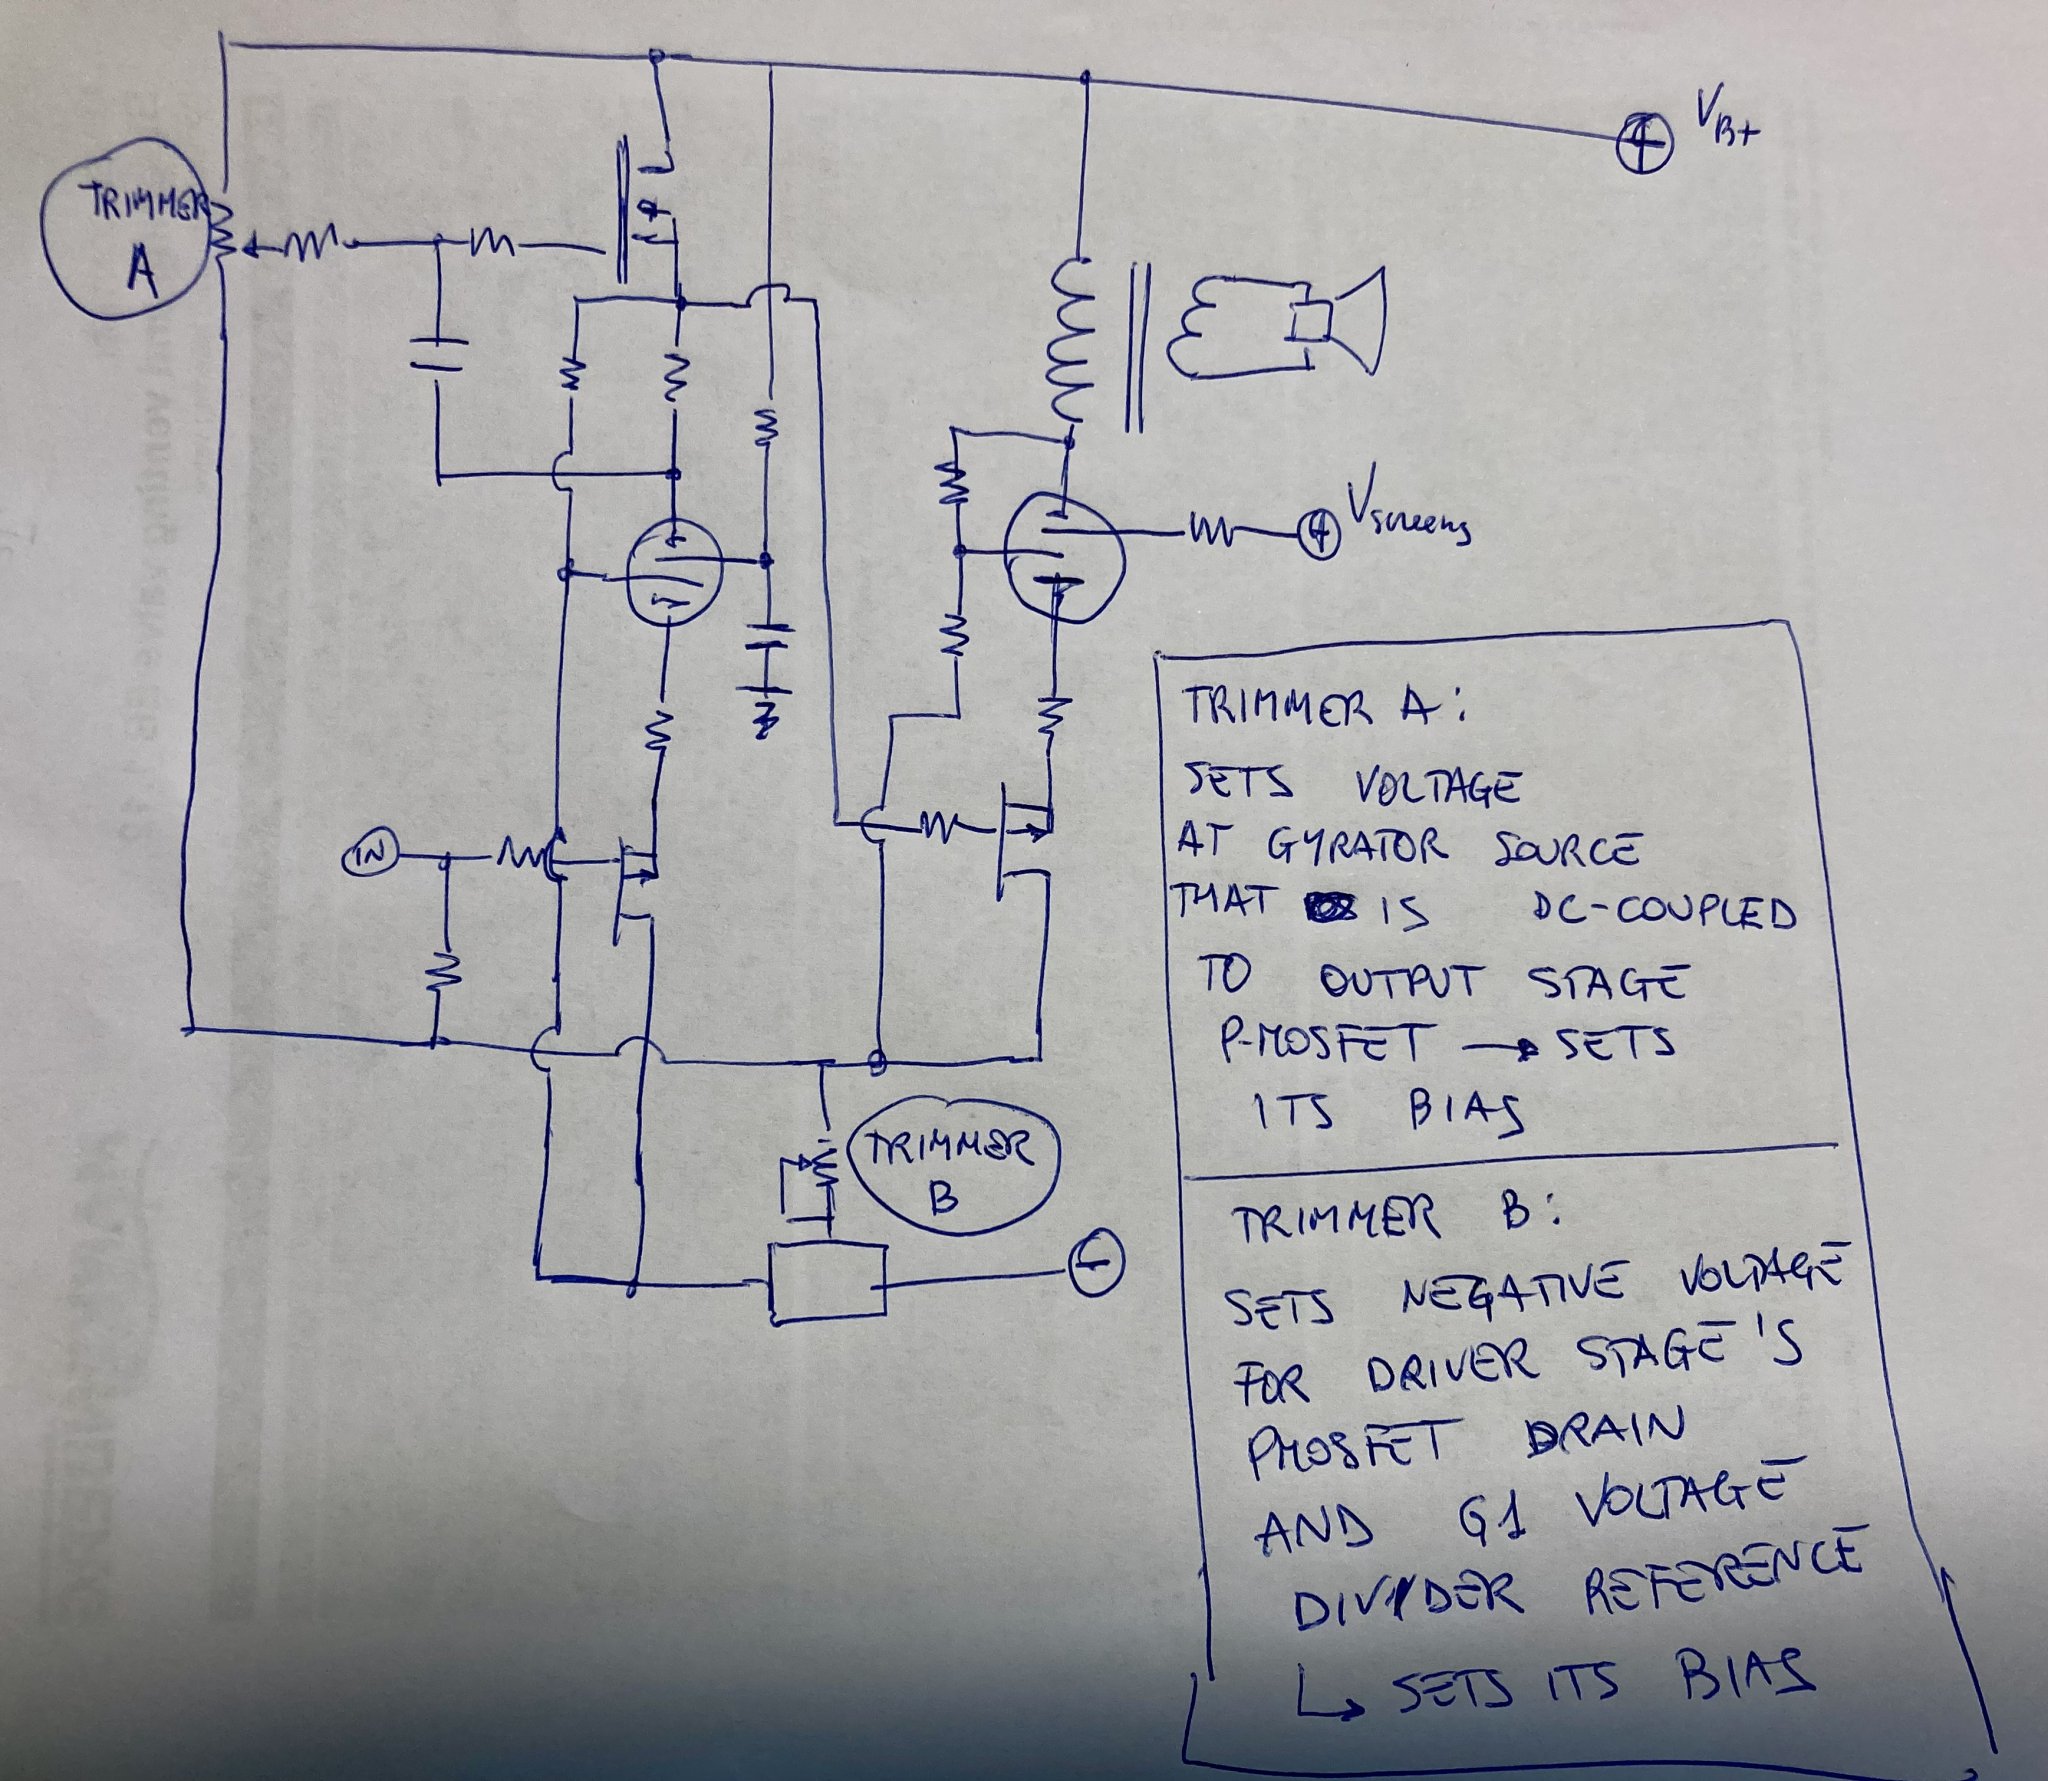 VB+
TRIMMER
A
Vscreens
IN
TRIMMER
B
TRIMMER A:
SETS VOLTAGE
AT GYRATOR SOURCE
THAT IS DC-COUPLED
TO OUTPUT STAGE
P-MOSFET → SETS
ITS BIAS
TRIMMER B:
SETS NEGATIVE VOLTAGE
FOR DRIVER STAGE'S
PMOSFET DRAIN
AND G1 VOLTAGE
DIVIDER REFERENCE
↳ SETS ITS BIAS